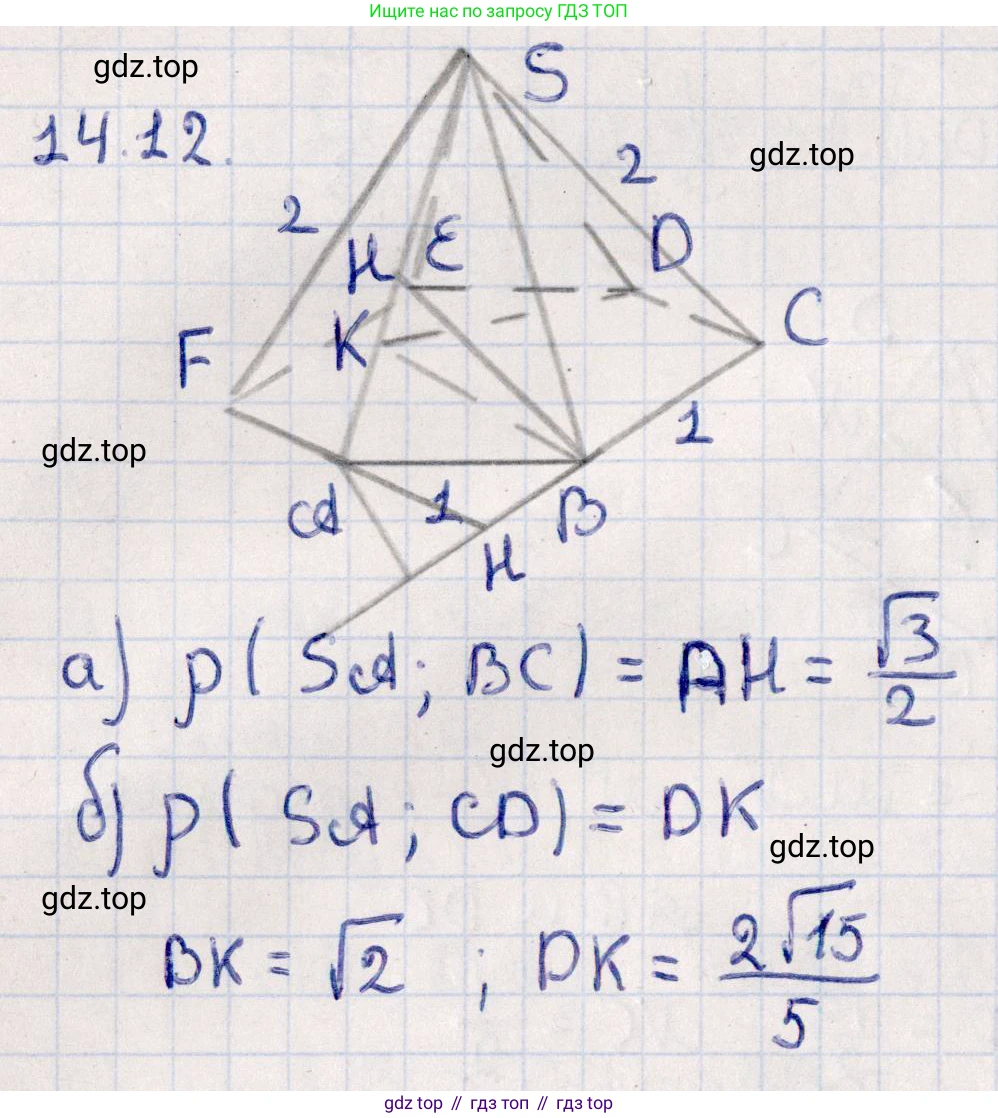 Ищите нас по запросу ГДЗ ТОП
gdz.top
S
14.12.
2
gdz.top
2
H E
D
K
C
F
gdz.top
1
A
1
B
H
а) ρ(SA; BC) = AH = √3/2
gdz.top
б) ρ(SA; CD) = DK
gdz.top
gdz.top
BK = √2 ; DK = 2√15/5
gdz.top // гдз топ // гдз top